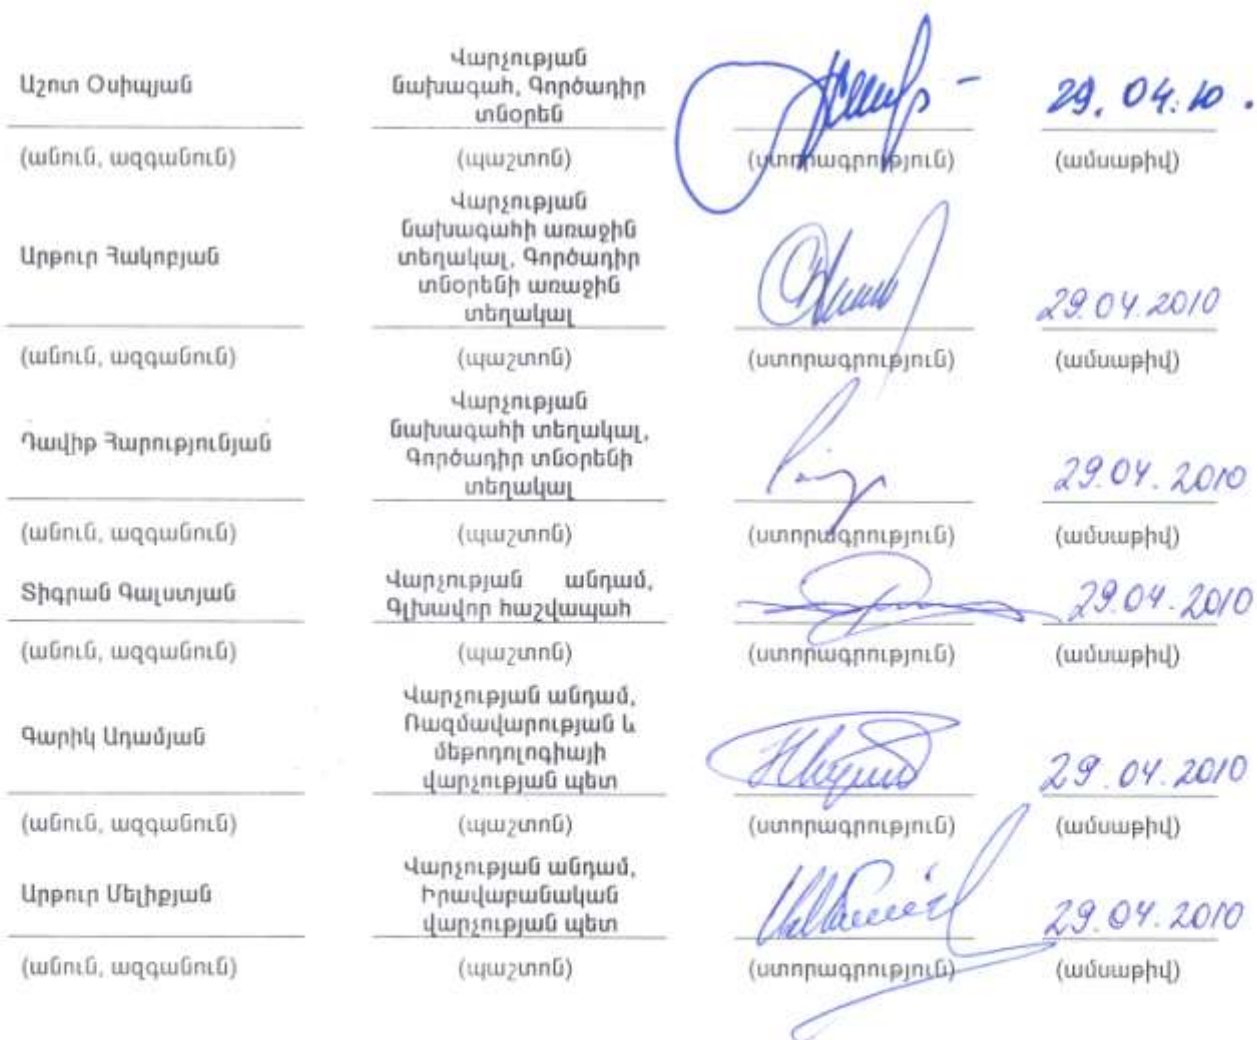 Աշոտ Օսիպյան
Վարչության
նախագահ, Գործադիր
տնօրեն
29.04.10.
(անուն, ազգանուն)
(պաշտոն)
(ստորագրություն)
(ամսաթիվ)
Արթուր Հակոբյան
Վարչության
նախագահի առաջին
տեղակալ, Գործադիր
տնօրենի առաջին
տեղակալ
29.04.2010
(անուն, ազգանուն)
(պաշտոն)
(ստորագրություն)
(ամսաթիվ)
Դավիթ Հարությունյան
Վարչության
նախագահի տեղակալ,
Գործադիր տնօրենի
տեղակալ
29.04.2010
(անուն, ազգանուն)
(պաշտոն)
(ստորագրություն)
(ամսաթիվ)
Տիգրան Գալստյան
Վարչության անդամ,
Գլխավոր հաշվապահ
29.04.2010
(անուն, ազգանուն)
(պաշտոն)
(ստորագրություն)
(ամսաթիվ)
Գարիկ Ադամյան
Վարչության անդամ,
Ռազմավարության և
մեթոդոլոգիայի
վարչության պետ
29.04.2010
(անուն, ազգանուն)
(պաշտոն)
(ստորագրություն)
(ամսաթիվ)
Արթուր Մելիքյան
Վարչության անդամ,
Իրավաբանական
վարչության պետ
29.04.2010
(անուն, ազգանուն)
(պաշտոն)
(ստորագրություն)
(ամսաթիվ)